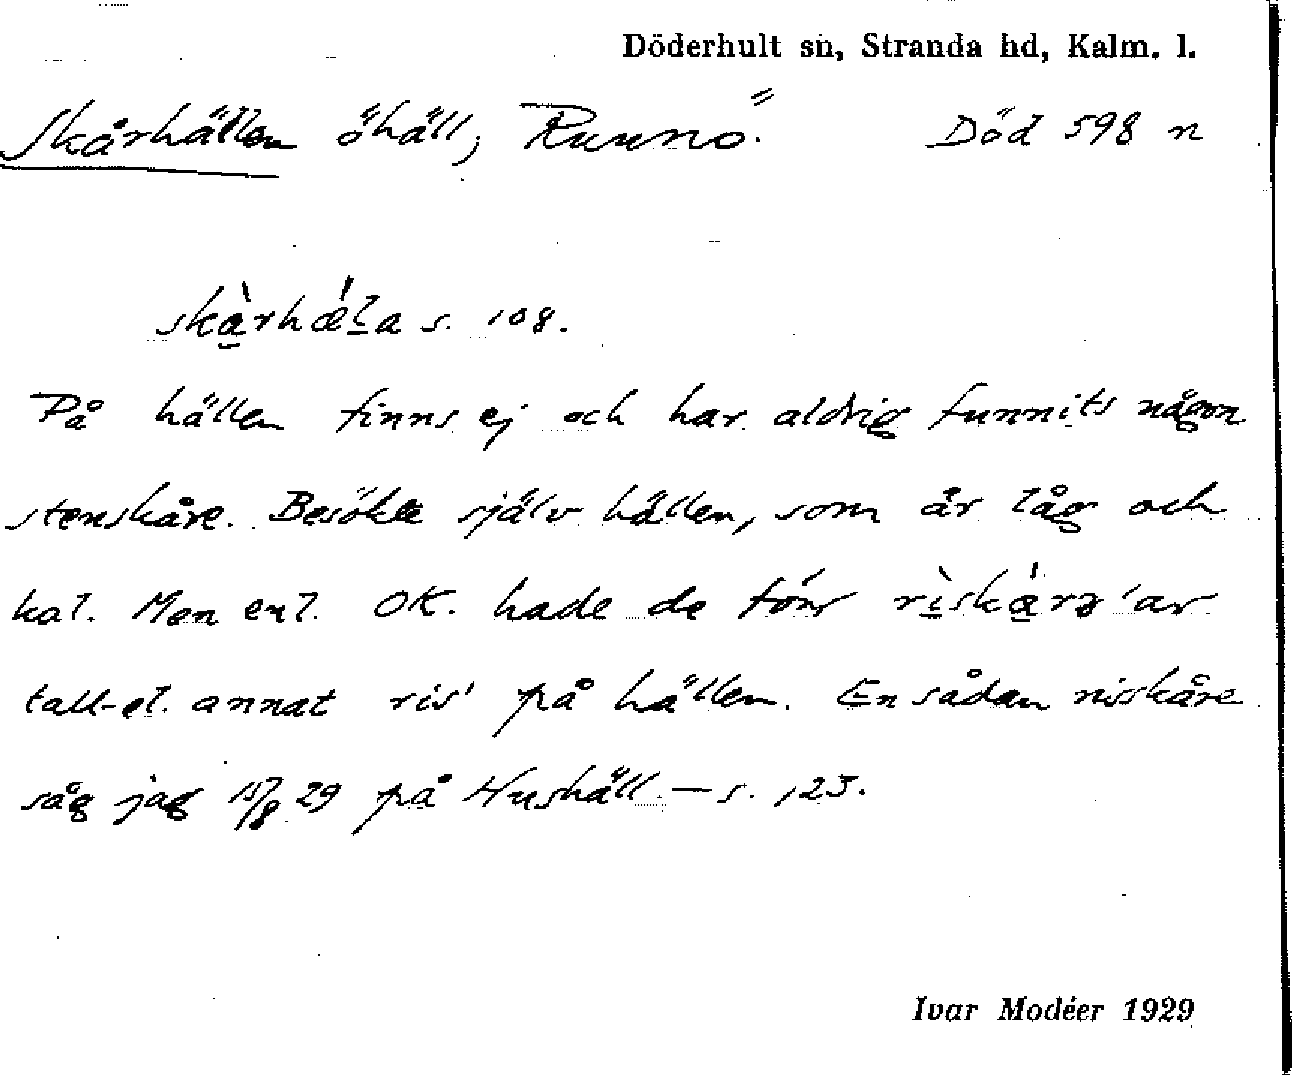 Döderhult sn, Stranda hd, Kalm. l.
Skårhällen öhäll, Runnö. Död 598 n
skàrhǽla s. 108.
På hällen finns ej och har aldrig funnits någon
stenskåre. Besökte själv hällen, som är låg och
kal. Men enl. OK. hade de förr rìskárə 'av
tall- el. annat ris' på hällen. En sådan risskåre
såg jag 15/8 29 på Hushäll. — s. 123.
Ivar Modéer 1929